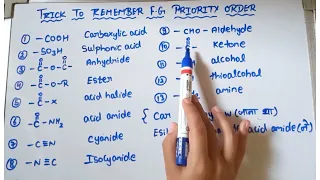 TRICK TO REMEMBER F.G PRIORITY ORDER
① -COOH Carboxylic acid
② -SO3H Sulphonic acid
③ -C-O-C- Anhydride
④ -C-O-R Ester
⑤ -C-X acid halide
⑥ -C-NH2 acid amide
⑦ -C≡N Cyanide
⑧ -N≡C Isocyanide
⑨ -CHO- Aldehyde
⑩ Ketone
11 alcohol
12 thioalcohol
13 amine
acid amide